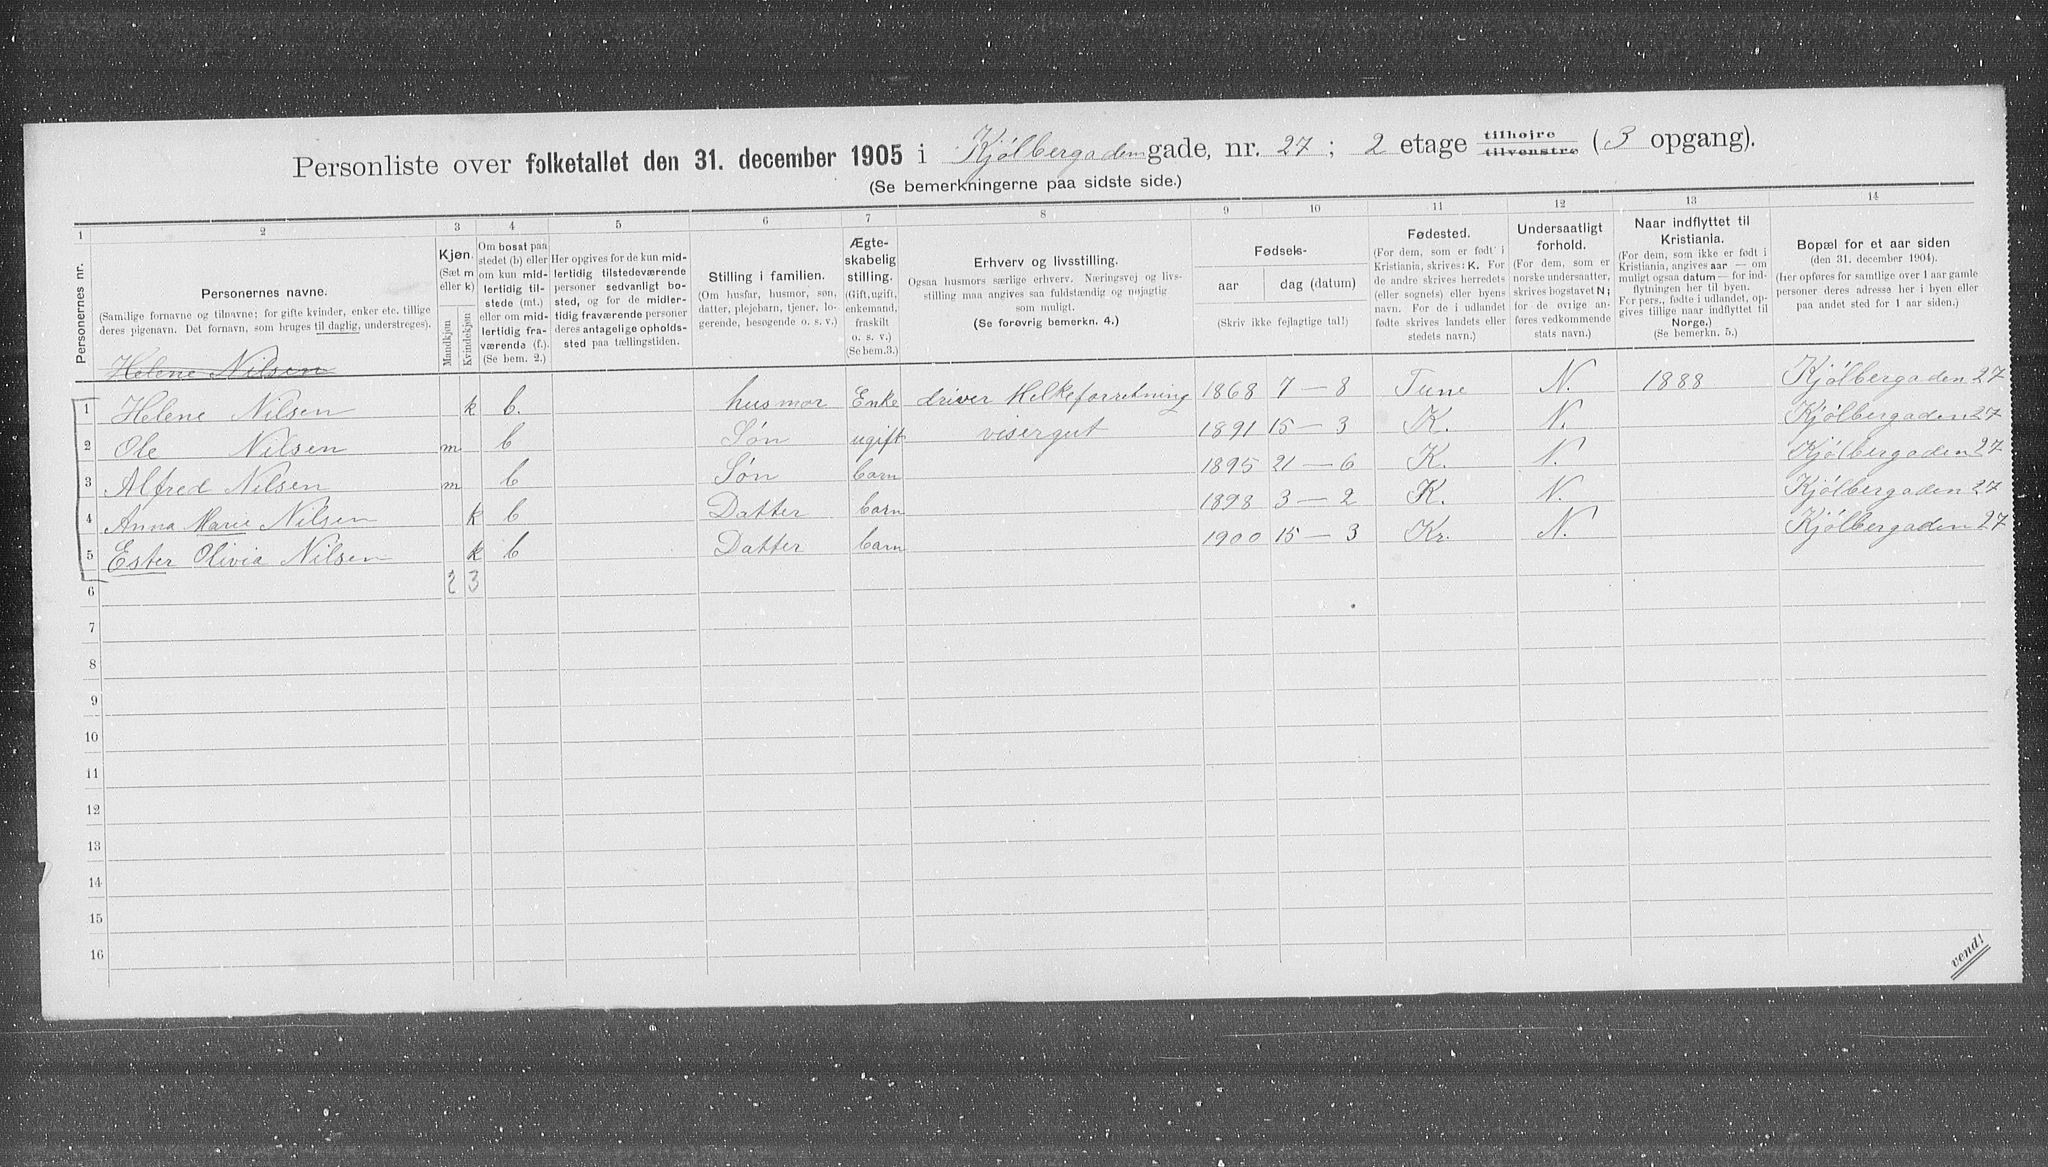 Personliste over folketallet den 31. december 1905 i Kjølbergaden gade, nr. 27; 2 etage tilhøjre tilvenstre (3 opgang).
(Se bemerkningerne paa sidste side.)
1 2 3 4 5 6 7 8 9 10 11 12 13 14
Personernes nr.
Personernes navne.
(Samtlige fornavne og tilnavne; for gifte kvinder, enker etc. tillige deres pigenavn. Det fornavn, som bruges til daglig, understreges).
Kjøn.
(Sæt m eller k)
Mandkjøn
Kvindekjøn
Om bosat paa stedet (b) eller om kun midlertidig tilstede (mt.) eller om midlertidig fraværende (f.)
(Se bem. 2.)
Her opgives for de kun midlertidig tilstedeværende personer sedvanligt bosted, og for de midlertidig fraværende personer deres antagelige opholdssted paa tællingstiden.
Stilling i familien.
(Om husfar, husmor, søn, datter, plejebarn, tjener, logerende, besøgende o. s. v.)
Ægteskabelig stilling.
(Gift, ugift, enkemand, fraskilt o. s. v.)
(Se bem.3.)
Erhverv og livsstilling.
Ogsaa husmors særlige erhverv. Næringsvej og livsstilling maa angives saa fuldstændig og nøjagtig som muligt.
(Se forøvrig bemerkn. 4.)
Fødsels-
aar dag (datum)
(Skriv ikke fejlagtige tal!)
Fødested.
(For dem, som er født i Kristiania, skrives: K. For de andre skrives herredets (eller sognets) eller byens navn. For de i udlandet fødte skrives landets eller stedets navn.)
Undersaatligt forhold.
(For dem, som er norske undersaatter, skrives bogstavet N; for de øvrige anføres vedkommende stats navn.)
Naar indflyttet til Kristiania.
(For dem, som ikke er født i Kristiania, angives aar — om muligt ogsaa datum — for indflytningen her til byen. For pers., fødte i udlandet, opgives tillige naar indflyttet til Norge.)
(Se bemerkn. 5.)
Bopæl for et aar siden
(den 31. december 1904).
(Her opføres for samtlige over 1 aar gamle personer deres adresse her i byen eller paa andet sted for 1 aar siden.)
Helene Nilsen
1 Helene Nilsen k b. husmor Enke driver Melkeforretning 1868 7 – 8 Tune N. 1888 Kjølbergaden 27
2 Ole Nilsen m b Søn ugift visergut 1891 15 – 3 K. N. Kjølbergaden 27
3 Alfred Nilsen m b Søn barn 1895 21 – 6 K. N. Kjølbergaden 27
4 Anna Marie Nilsen k b Datter barn 1898 3 – 2 K. N. Kjølbergaden 27
5 Ester Olivia Nilsen k b Datter barn 1900 15 – 3 Kr. N. Kjølbergaden 27
6 2 3
7
8
9
10
11
12
13
14
15
16
vend!